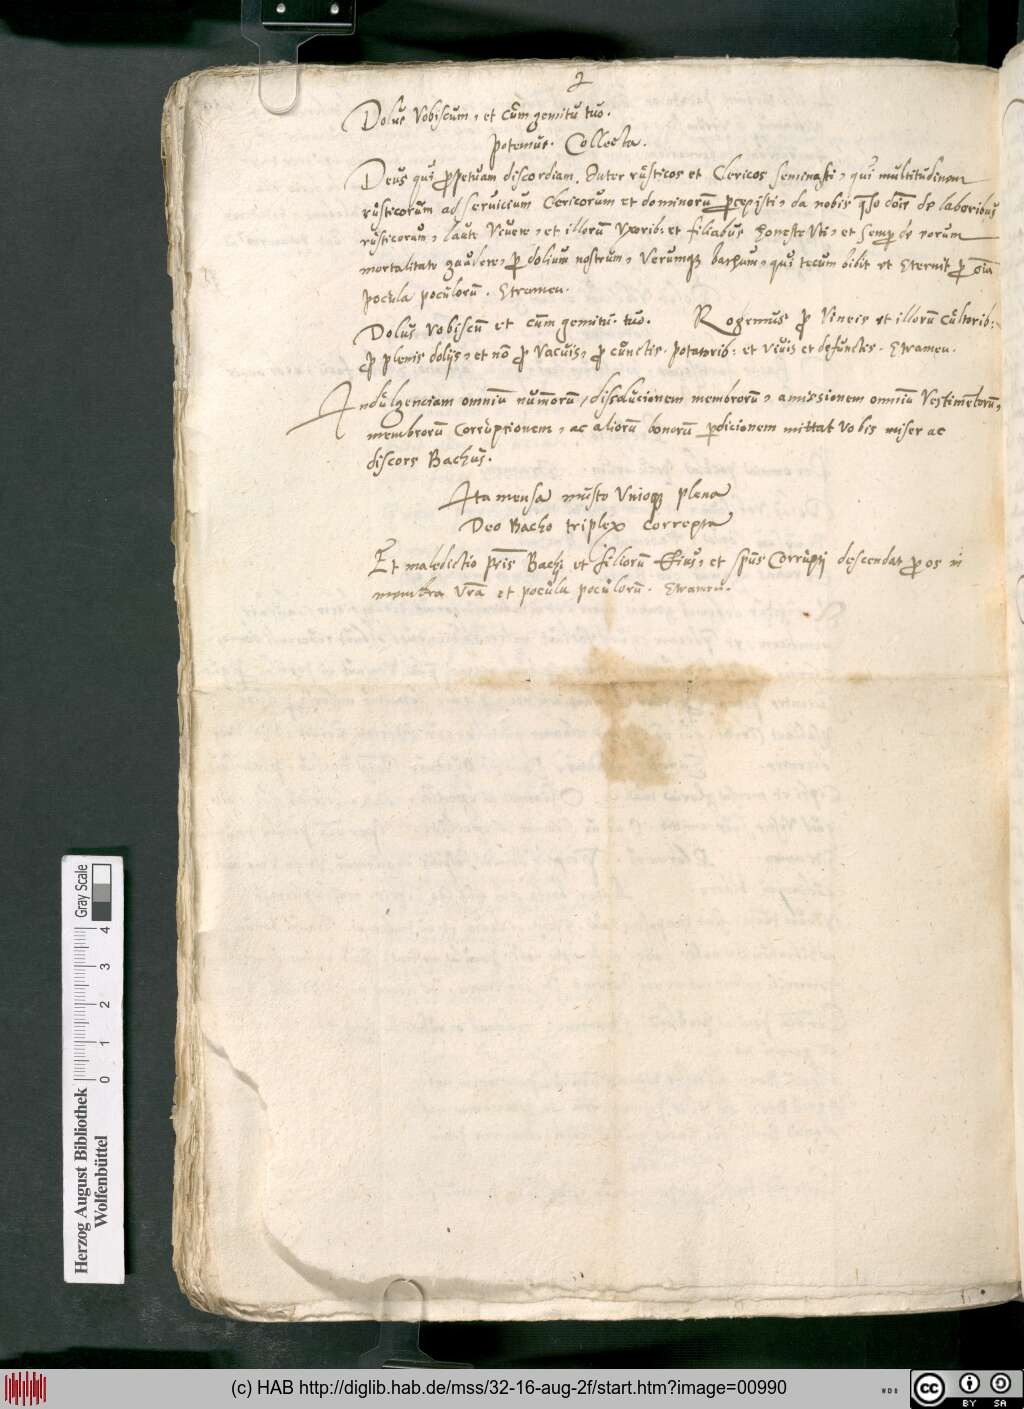 2
Dolus vobiscum, et cũm gemitu tuo.
Potemus. Collecta.
Deus qui ꝑpetuam discordiam. Inter rusticos et Clericos seminasti, qui multitudinem
rusticorum ad seruicium Clericorum et dominorũ ꝑcepisti, da nobis q̃so de laboribus
rusticorum, laute viuere, et illorũ vxorib: et filiabus honeste vti, et semꝑ de eorum
mortalitate gaudere, ꝑ dolium nostrum, verumq; bachum, qui tecum bibit et Sternit ꝑ oĩa
pocula poculorũ. Stramen.
Dolus vobiscũ et cũm gemitu. tuo. Rogemus ꝓ Vineis et illorũ cultorib:
ꝓ plenis dolijs, et nõ ꝓ vacuis, ꝓ cunctis. potatorib: et viuis et defunctis. Stramen.
Indulgenciam omniũ numorũ, dissolucionem membrorũ, amissionem omniũ Vestimẽtorũ,
membrorũ Corrupcionem, ac aliorũ bonorũ ꝑdicionem mittat vobis miser ac
discors Bachus.
Ita mensa musto Vnioq; plena
Deo Bacho triplex correpta
Et maledictio pr̃is Bachi et filiorũ Eius, et spũs Corrupti descendat ꝑ os in
membra vr̃a et pocula poculorũ. Stramen.
Gray Scale
0 1 2 3 4
Herzog August Bibliothek
Wolfenbüttel
(c) HAB http://diglib.hab.de/mss/32-16-aug-2f/start.htm?image=00990
WDB
cc BY SA